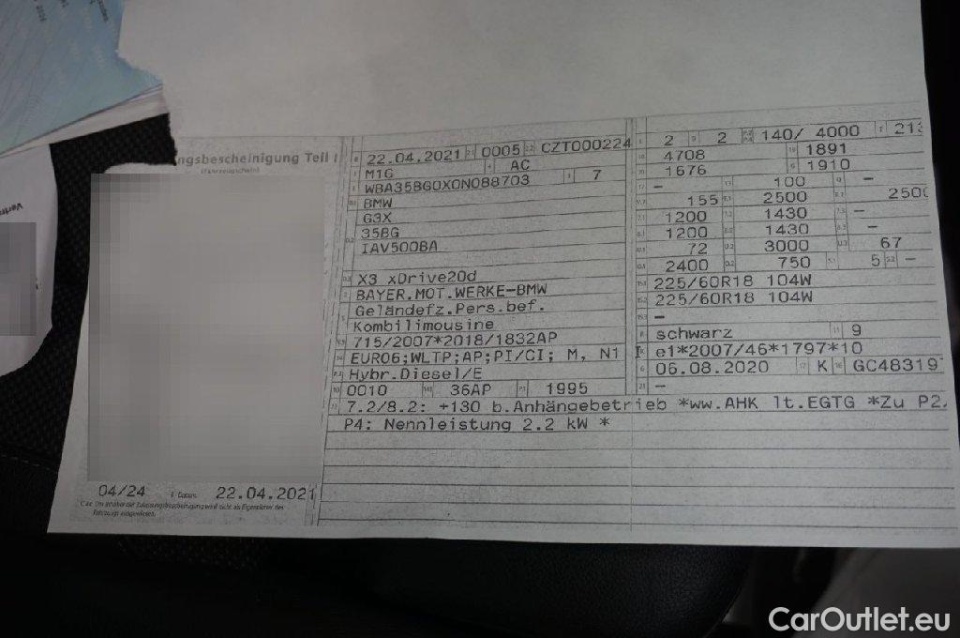 ngsbescheinigung Teil I
22.04.2021 0005 CZT000224
M1G AC
WBA35BG0X0N088703 7
BMW
G3X
35BG
IAV500BA
X3 xDrive20d
BAYER.MOT.WERKE-BMW
Geländefz.Pers.bef.
Kombilimousine
715/2007*2018/1832AP
EURO6;WLTP;AP;PI/CI; M, N1
Hybr.Diesel/E
0010 36AP 1995
2 2 140/ 4000 213
4708 1891
1676 1910
- 100 -
155 2500 2500
1200 1430 -
1200 1430 -
72 3000 67
2400 750 5 -
225/60R18 104W
225/60R18 104W
-
schwarz 9
e1*2007/46*1797*10
06.08.2020 K GC48319
-
7.2/8.2: +130 b.Anhängebetrieb *ww.AHK lt.EGTG *Zu P2.
P4: Nennleistung 2.2 kW *
04/24 Datum 22.04.2021
CarOutlet.eu